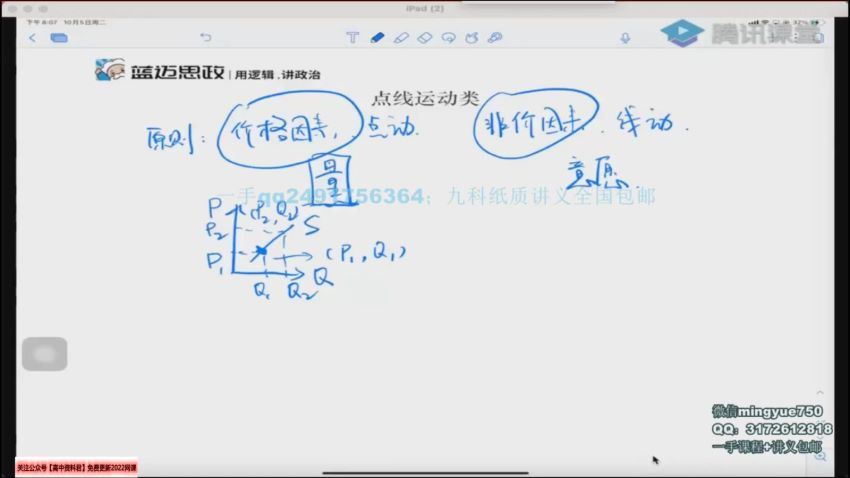 iPad (2)
下午8:07 10月5日周二
腾讯课堂
蓝迈思政 | 用逻辑,讲政治
点线运动类
原则: 价格因素, 点动. 非价因素. 线动.
量
意愿.
一手qq2491756364；九科纸质讲义全国包邮
P (P2, Q2)
P2 S
P1 (P1, Q1)
Q
Q1 Q2
微信mingyue750
QQ：3172612818
一手课程+讲义包邮
关注公众号【高中资料君】免费更新2022网课